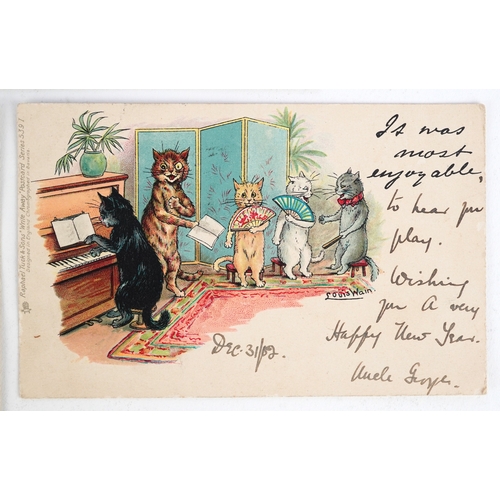 Raphael Tuck & Sons' "Write Away" Postcard Series 539
Designed in England Chromographed in Bavaria
It was
most
enjoyable,
to hear you
play.
Wishing
you A very
Happy New Year.
Uncle George.
Louis Wain.
Dec. 31/02.